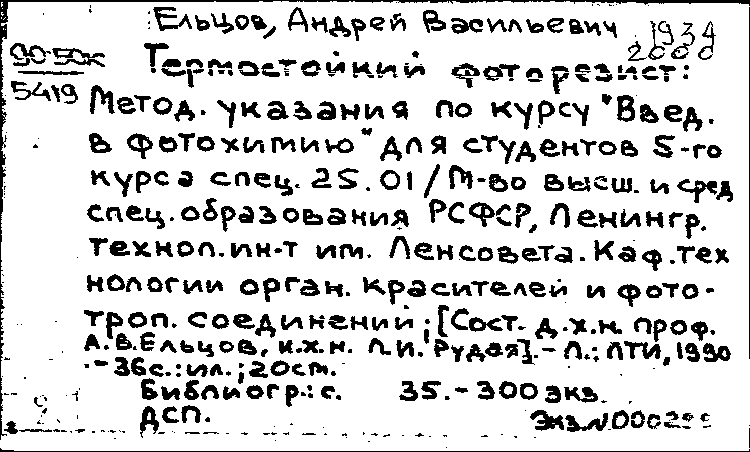 Ельцов, Андрей Васильевич 1934
2000
90-50к Термостойкий фоторезист:
5419 Метод. указания по курсу "Введ.
в фотохимию" для студентов 5-го
курса спец. 25.01/М-во высш. и сред
спец. образования РСФСР, Ленингр.
технол. ин-т им. Ленсовета. Каф. тех
нологии орган. красителей и фото-
троп. соединений; [Сост. д.х.н. проф.
А.В. Ельцов, к.х.н. Л.И. Рудая]. - Л.: ЛТИ, 1990
. - 36с.: ил.; 20см.
Библиогр.: с. 35. - 300 экз.
ДСП. Экз. N